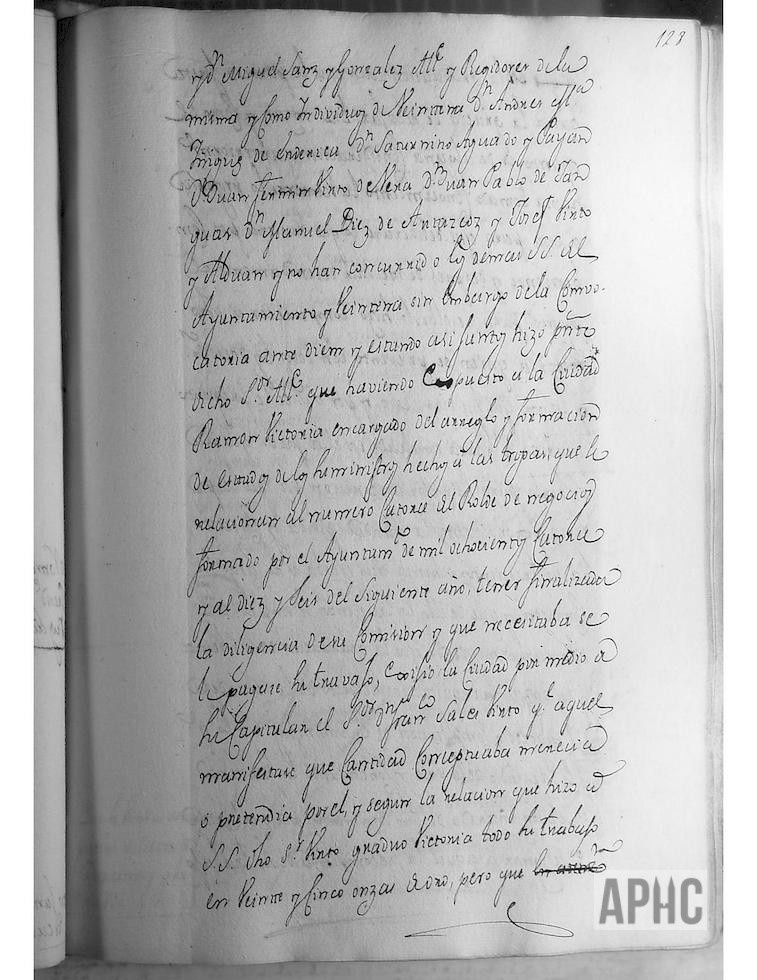 128
y Dn Miguel Sanz y Gonzalez Alle y Regidores de la
misma y Como Individuos de Veintena Dn Andres Ma
Iñigues de Dn Saturnino Aguado y Payan
Dn Juan fermin Vinto de Vera Dn Juan Pablo de Tan
guas Dn Manuel Diez de y Josef Vinto
y Alduan y no han concurrido los demas SS. del
Ayuntamiento y Veintena sin embargo de la Convo-
catoria ante diem y estando asi juntos hizo pnte
dicho Sor Alle que haviendo Expuesto a la Ciudad
Ramon Victoria encargado del arreglo y formacion
de estados de los suministros hechos a las tropas, que le
relacionan al numero Catorce del Rolde de negocios
formado por el Ayuntamto de mil ochocientos Catorce
y al diez y seis del Siguiente año, tener finalizada
la diligencia de su Comision y que necesitaba se
le pagase su travajo, Exijio la Ciudad por medio de
su Capitular el Sor Dn franco Sales Vinto qe aquel
manifestase que Cantidad Conceptuaba merecia
o pretendia por el, y segun la relacion que hizo a
S.S. dho Sr Vinto graduo Victoria todo su trabajo
en Veinte y Cinco onzas de oro, pero que
APHC